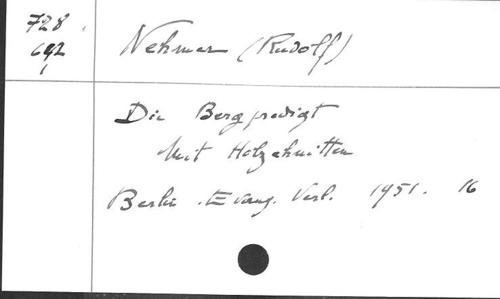 728.
692
1
Nehmer (Rudolf)
Die Bergpredigt
Mit Holzschnitten
Berlin. Evang. Verl. 1951. 16